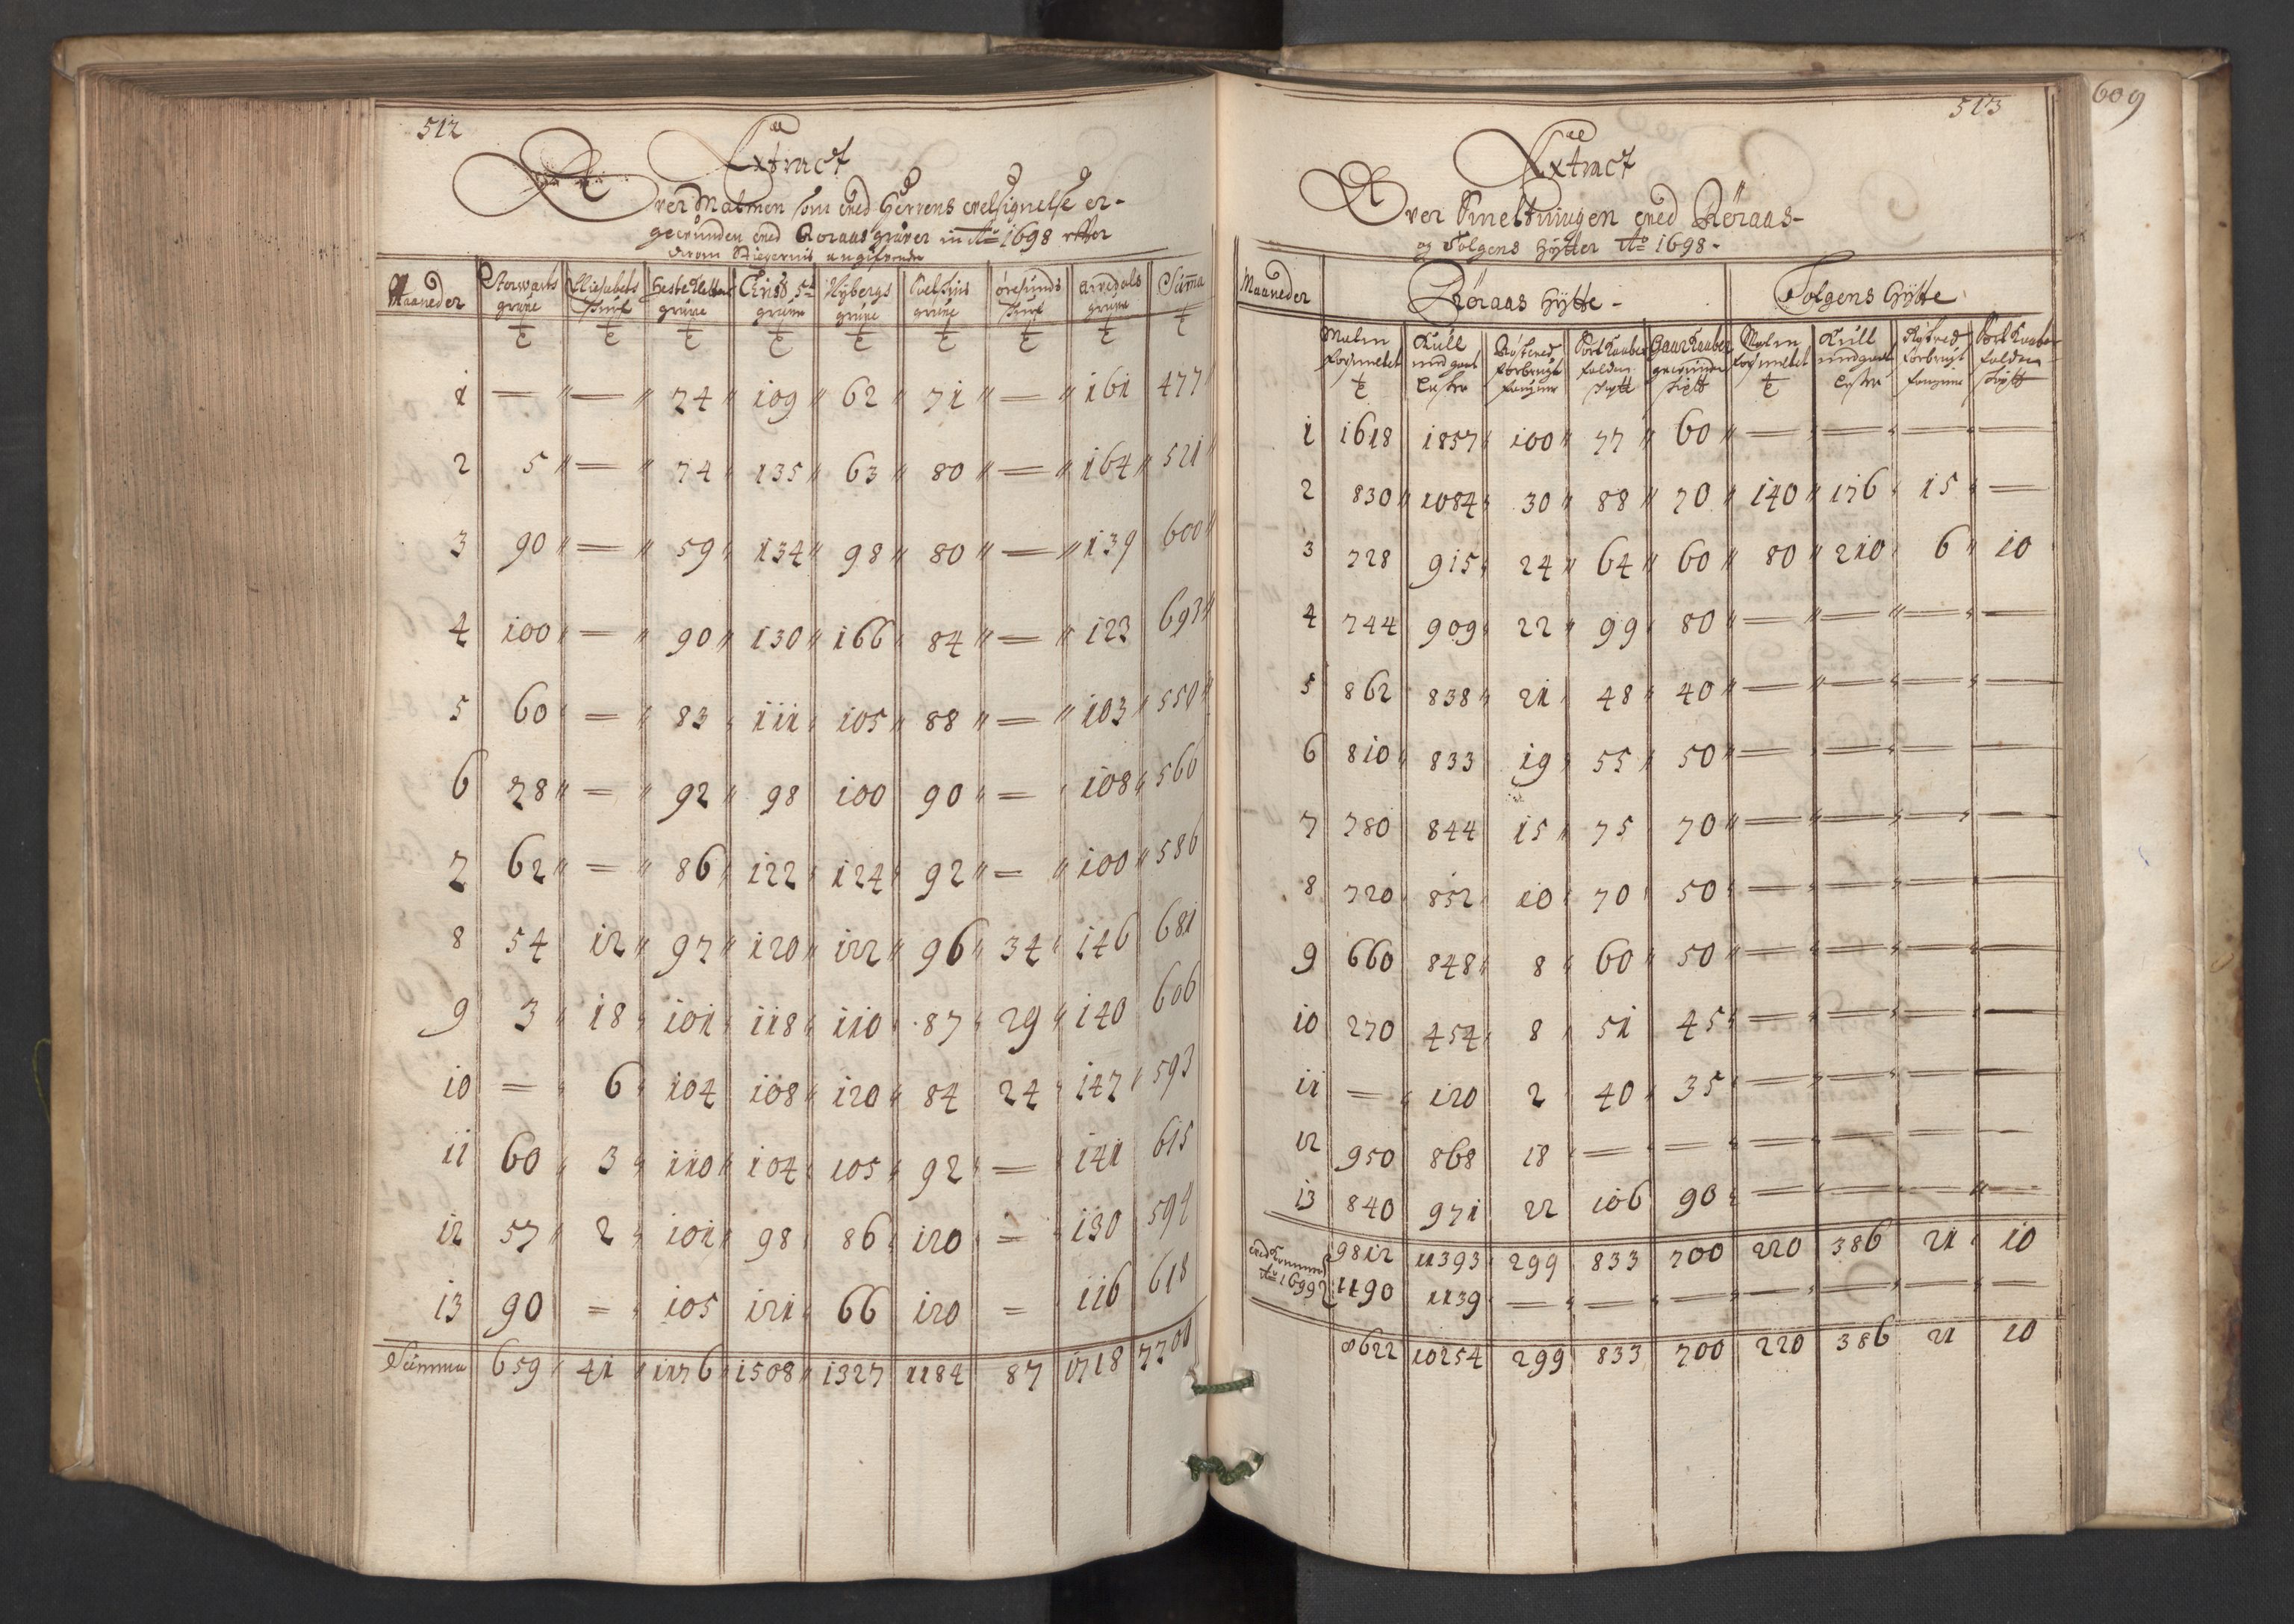 512
Extract
Over Malmen som med Herrens velsignelse er-
gewunden ved Röraas gruver in Ao 1698 effter
Maaneder Storwarts Elisabets Hesteklettens Christ. 5ti Nÿbergs Solskins öresunds arvedals Summa
grube skurf grube grube grube grube skurf grube
1 — — 74 109 62 71 — 161 477
2 5 — 74 135 63 80 — 164 521
3 90 — 59 134 98 80 — 139 600
4 100 — 90 130 166 84 — 123 693
5 60 — 83 111 105 88 — 103 550
6 78 — 92 98 100 90 — 108 566
7 62 — 86 122 124 92 — 100 586
8 54 12 97 120 122 96 34 146 681
9 3 18 101 118 110 87 29 140 606
10 — 6 104 108 120 84 24 147 593
11 60 3 110 104 105 92 — 141 615
12 57 2 101 98 86 120 — 130 594
13 90 — 105 121 66 120 — 116 618
Summa 659 41 1176 1508 1327 1184 87 1718 7700
513
Extract
Over Smeltningen ved Röraas-
og Tolgens Hÿtter Ao 1698-
Maaneder Röraas Hÿtte - Tolgens Hÿtte
Malm Kull Röstved Sort Kaaber Gaar Kaaber Malm Kull Röstved Sort Kaaber
forsmeltet medgaaet forbrugt falden gewunden forsmeltet medgaaet forbrugt falden
Lester faufner Lester faufne
1 1618 1857 100 77 60 — — — —
2 830 1084 30 88 70 140 176 15 —
3 728 915 24 64 60 80 210 6 10
4 744 909 22 99 80 — — — —
5 862 838 21 48 40 — — — —
6 810 833 19 55 50 — — — —
7 780 844 15 75 70 — — — —
8 720 852 10 70 50 — — — —
9 660 848 8 60 50 — — — —
10 270 454 8 51 45 — — — —
11 — 120 2 40 35 — — — —
12 950 868 18 — — — — — —
13 840 971 22 106 90 — — — —
9812 11393 299 833 700 220 386 21 10
Ao 1699 1190 1139 — — — — — — —
8622 10254 299 833 700 220 386 21 10
609